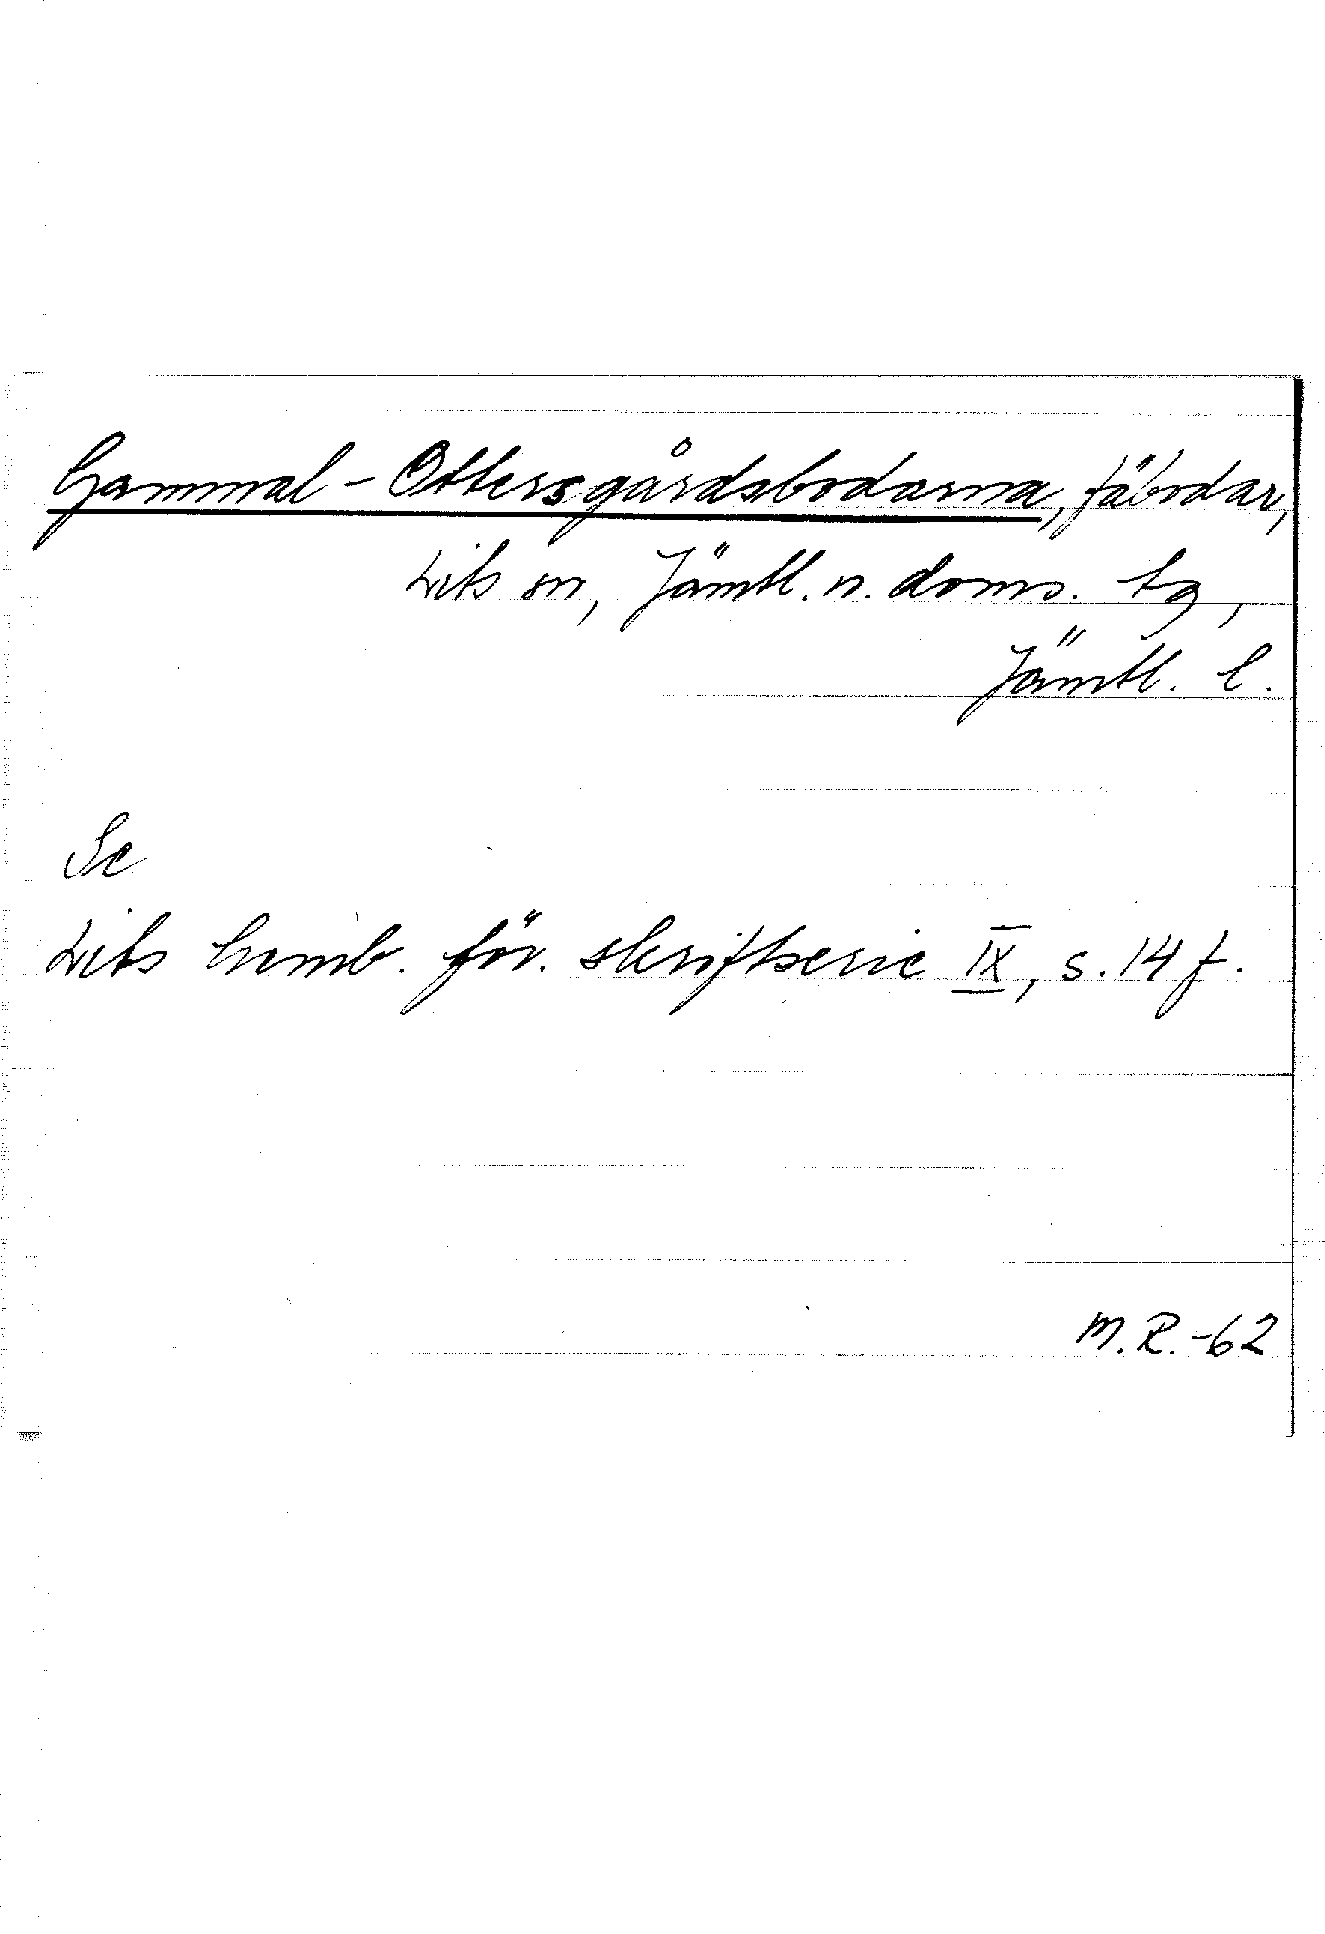 Gammal-Ottersgårdsbodarna, fäbodar,
Lits sn, Jämtl. n. doms. tg,
Jämtl. l.
Se
Lits hemb. för. skriftserie IX, s. 14 f.
M.R.-62